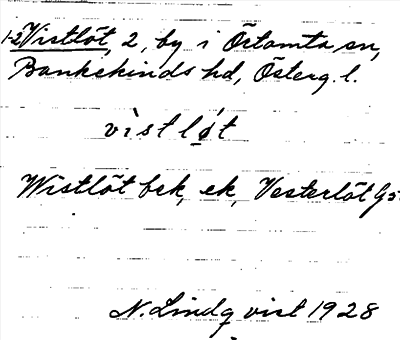 1-2 Vistlöt, 2, by i Örtomta sn,
Bankekinds hd, Österg. l.
vìstlǿt
Wistlöt bek, ek, Vesterlöt Gs
N. Lindqvist 1928